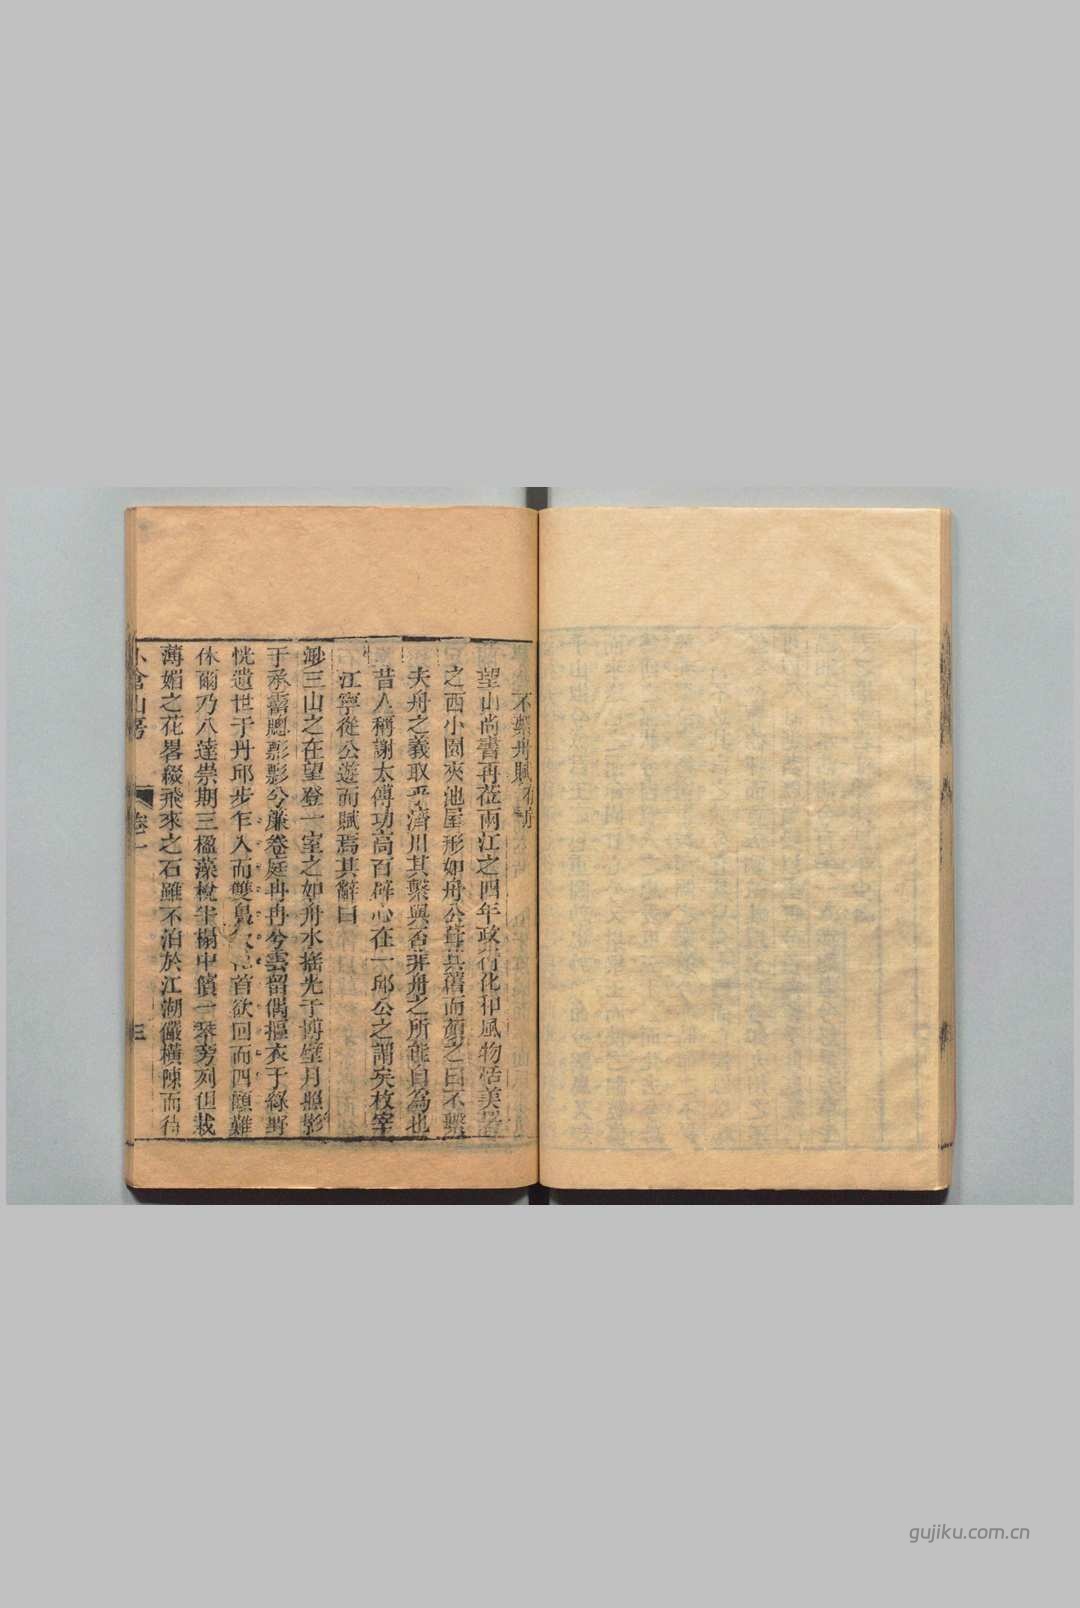 不繫舟賦有序
望山尚書再莅兩江之四年政行化和風物恬美署
之西小園夾池屋形如舟公葺其舊而顏之曰不繫
夫舟之義取乎濟川其繫與否非舟之所能自為也
昔人稱謝太傅功高百辟心在一邱公之謂矣枚宰
江寧從公遊而賦焉其辭曰
渺三山之在望登一室之如舟水搖光于博壁月照影
于承霤颸影影兮簾卷庭冉冉兮雲留偶摳衣于綠野
恍遺世于丹邱步乍入而雙鳧 首欲回而四顧難
休爾乃八達崇期三楹藻梲 榻中鋪一琴旁列但栽
薄媚之花畧綴飛來之石雖不泊於江湖儼橫陳而待
小倉山房
卷一
三
gujiku.com.cn